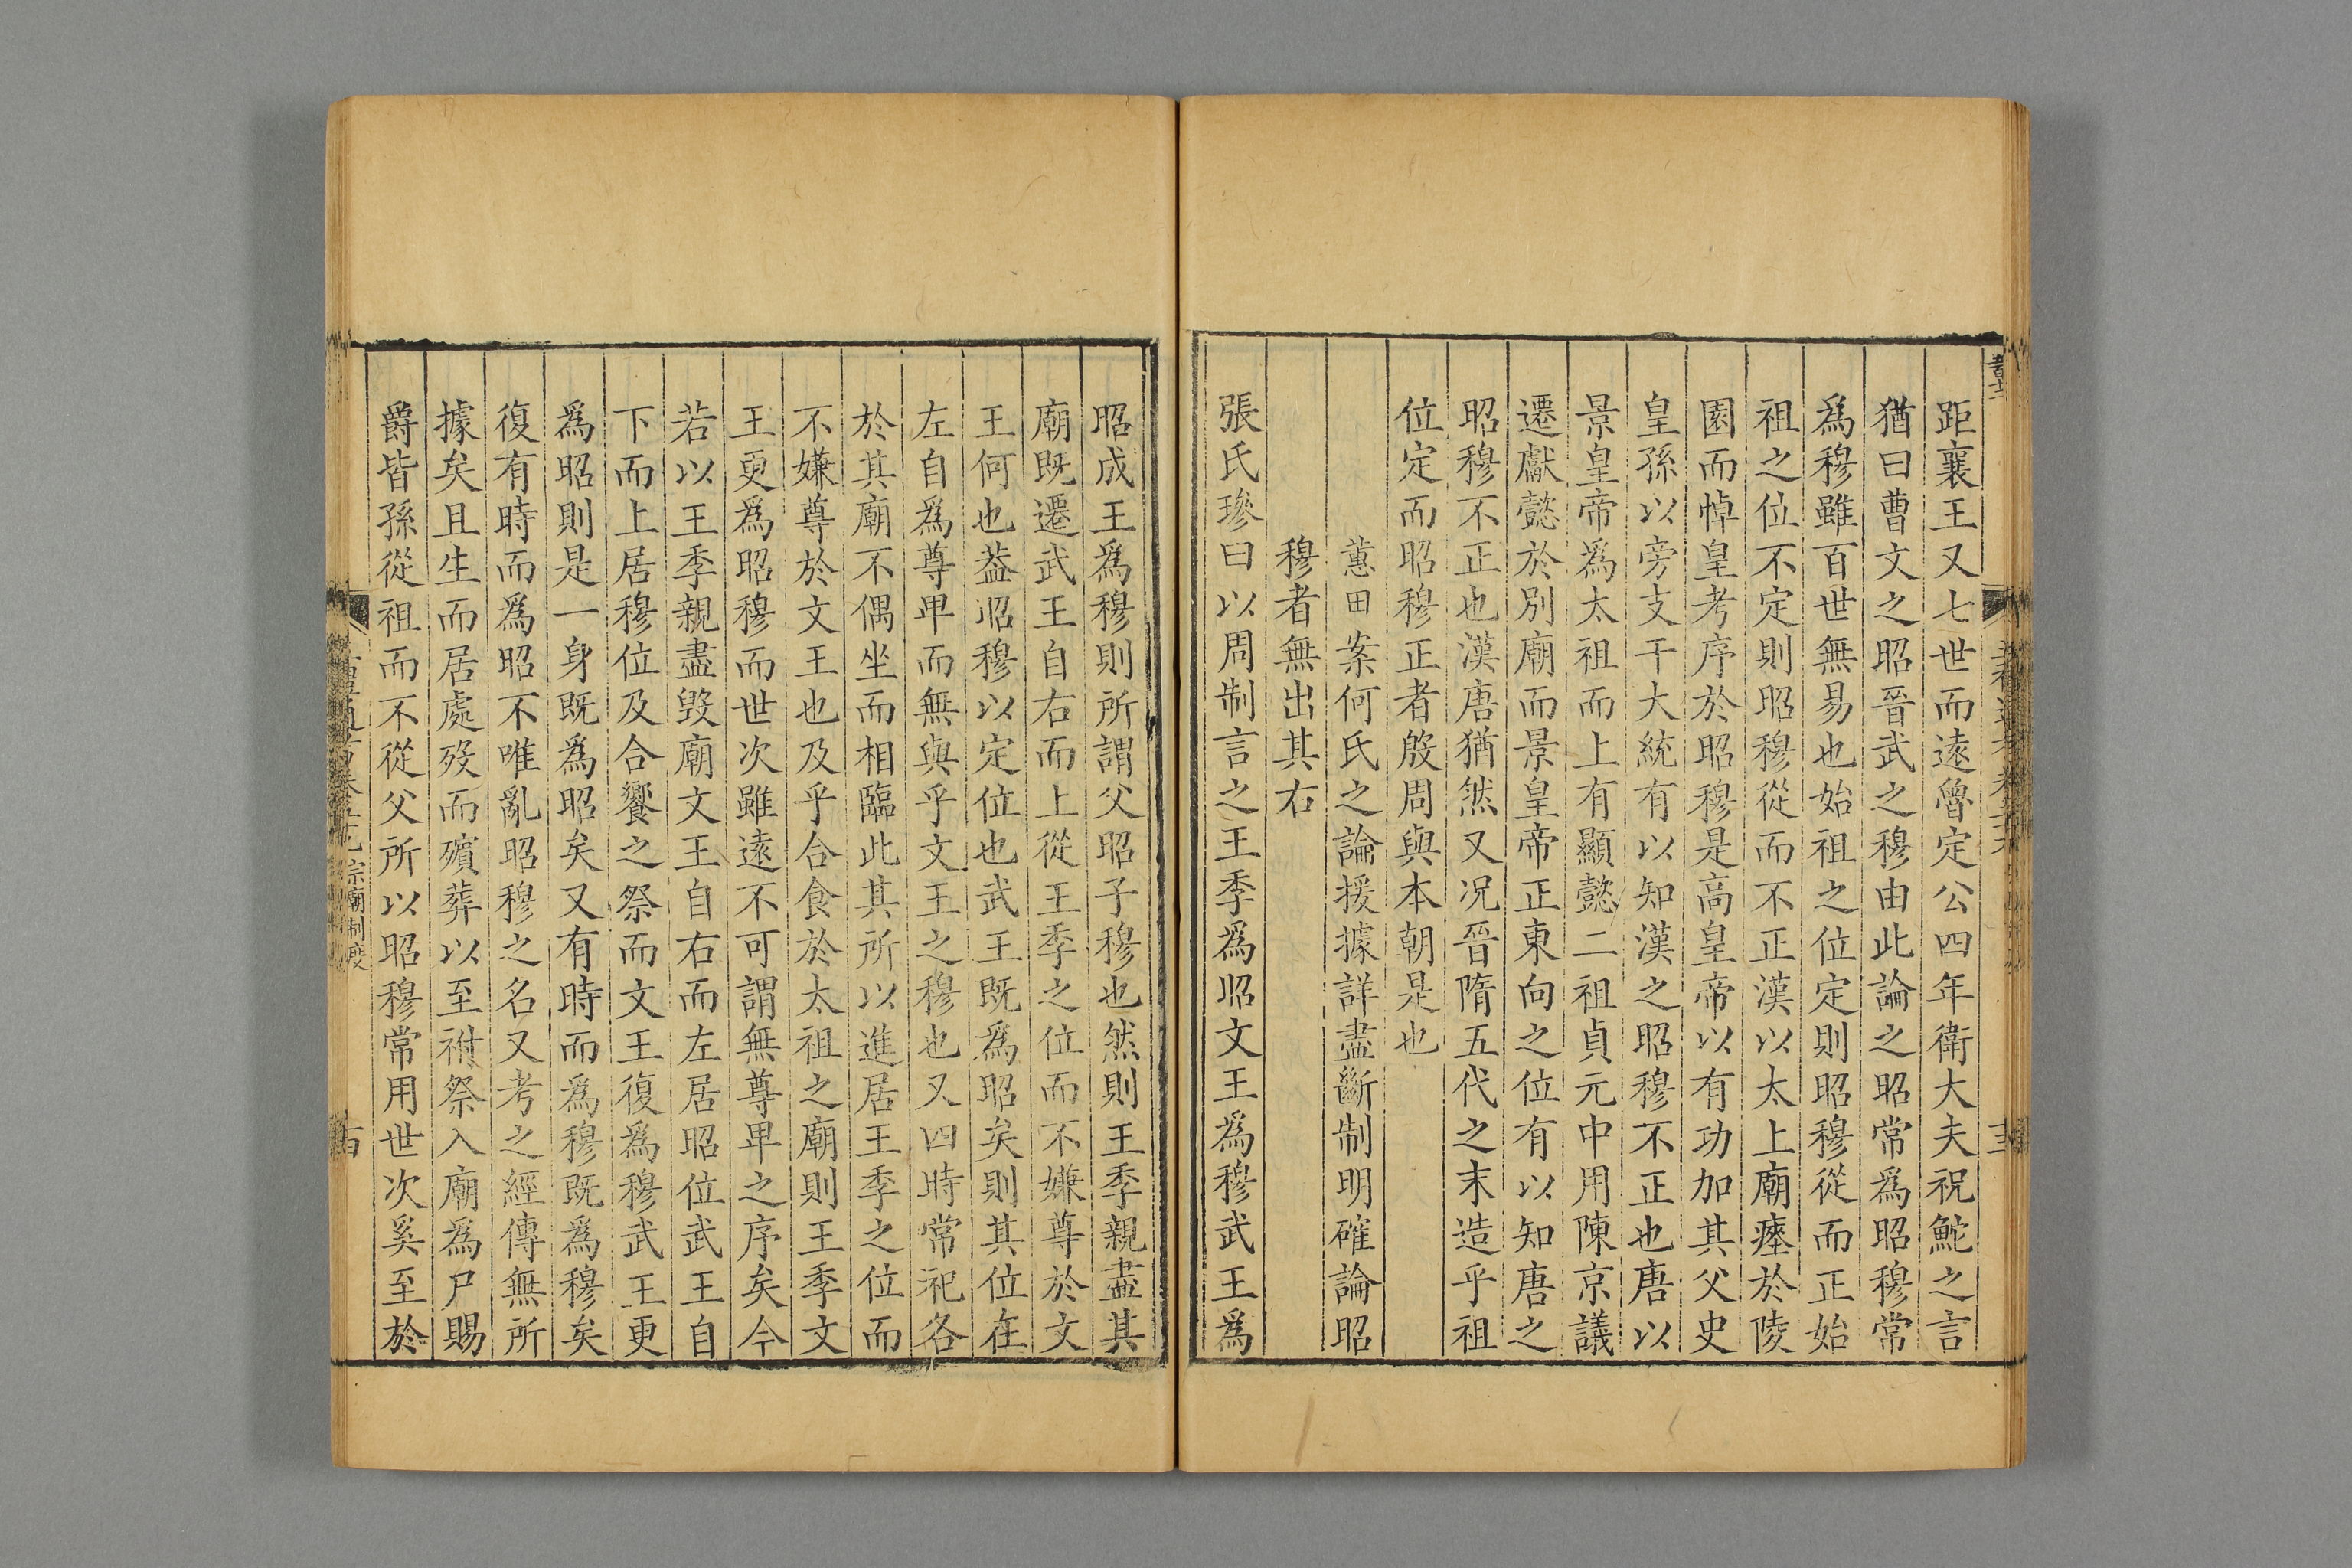 距襄王又七世而遠魯定公四年衛大夫祝鮀之言
猶曰曹文之昭晉武之穆由此論之昭常爲昭穆常
爲穆雖百世無易也始祖之位定則昭穆從而正始
祖之位不定則昭穆從而不正漢以太上廟瘞於陵
園而悼皇考序於昭穆是高皇帝以有功加其父史
皇孫以旁支干大統有以知漢之昭穆不正也唐以
景皇帝爲太祖而上有顯懿二祖貞元中用陳京議
遷獻懿於別廟而景皇帝正東向之位有以知唐之
昭穆不正也漢唐猶然又况晉隋五代之末造乎祖
位定而昭穆正者殷周與本朝是也
蕙田案何氏之論援據詳盡斷制明確論昭
穆者無出其右
張氏璪曰以周制言之王季爲昭文王爲穆武王爲
昭成王爲穆則所謂父昭子穆也然則王季親盡其
廟既遷武王自右而上從王季之位而不嫌尊於文
王何也葢昭穆以定位也武王既爲昭矣則其位在
左自爲尊卑而無與乎文王之穆也又四時常祀各
於其廟不偶坐而相臨此其所以進居王季之位而
不嫌尊於文王也及乎合食於太祖之廟則王季文
王更爲昭穆而世次雖遠不可謂無尊卑之序矣今
若以王季親盡毀廟文王自右而左居昭位武王自
下而上居穆位及合饗之祭而文王復爲穆武王更
爲昭則是一身既爲昭矣又有時而爲穆既爲穆矣
復有時而爲昭不唯亂昭穆之名又考之經傳無所
據矣且生而居處歿而殯葬以至祔祭入廟爲尸賜
爵皆孫從祖而不從父所以昭穆常用世次奚至於
宗廟制度